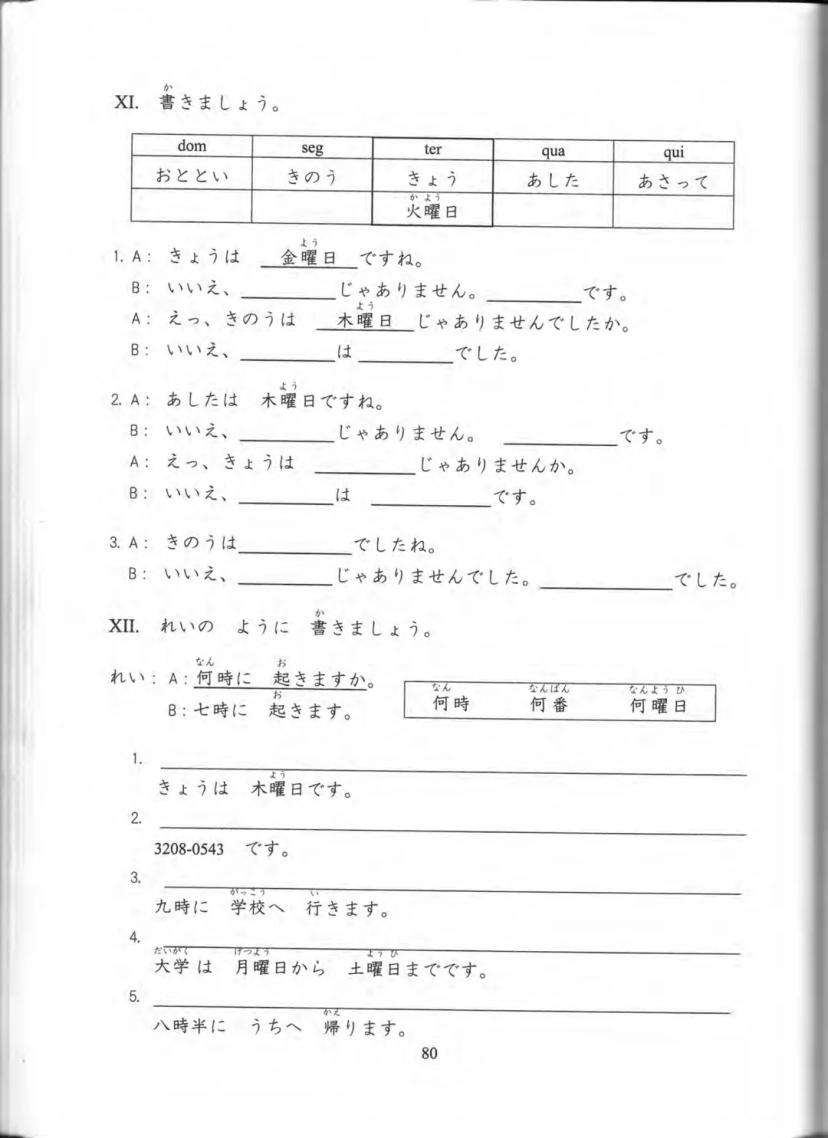 XI. 書きましょう。
か
dom seg ter qua qui
おととい きのう きょう あした あさって
かよう
火曜日
よう
1. A: きょうは 金曜日 ですね。
B: いいえ、__________じゃありません。__________です。
よう
A: えっ、きのうは 木曜日 じゃありませんでしたか。
B: いいえ、__________は__________でした。
よう
2. A: あしたは 木曜日ですね。
B: いいえ、__________じゃありません。 __________です。
A: えっ、きょうは __________じゃありませんか。
B: いいえ、__________は __________です。
3. A: きのうは__________でしたね。
B: いいえ、__________じゃありませんでした。__________でした。
か
XII. れいの ように 書きましょう。
なん お
れい: A: 何時に 起きますか。
お
B: 七時に 起きます。
なん なんばん なんようひ
何時 何番 何曜日
1.
よう
きょうは 木曜日です。
2.
3208-0543 です。
3.
がっこう い
九時に 学校へ 行きます。
4.
だいがく げつよう ようひ
大学は 月曜日から 土曜日までです。
5.
かえ
八時半に うちへ 帰ります。
80